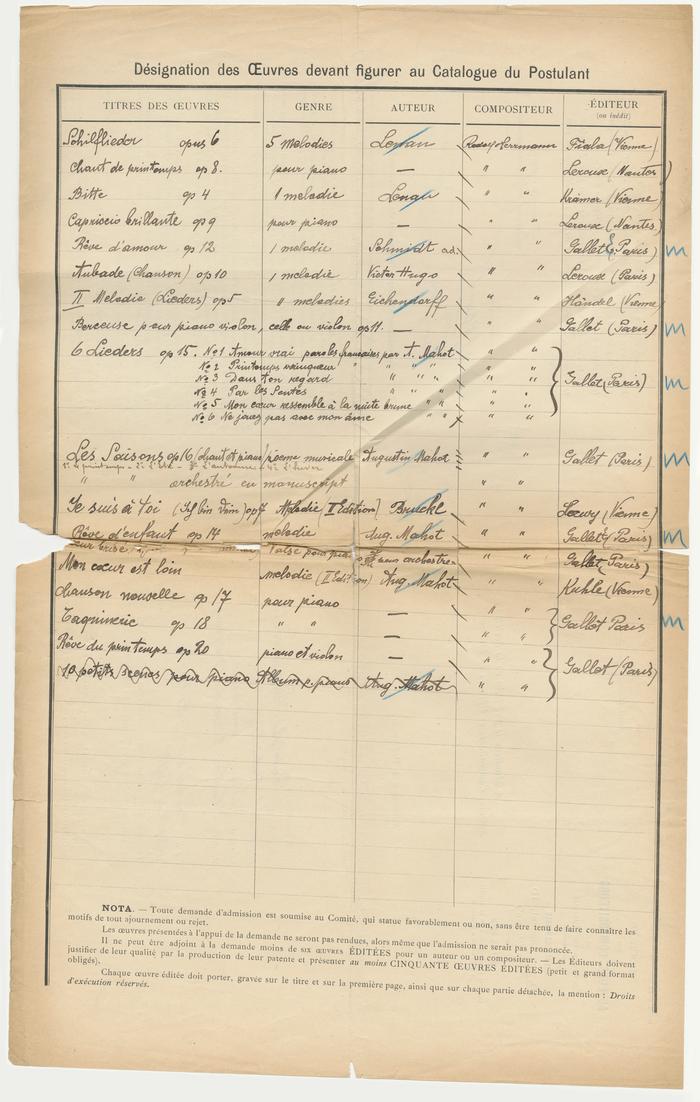 Désignation des Œuvres devant figurer au Catalogue du Postulant
TITRES DES ŒUVRES GENRE AUTEUR COMPOSITEUR ÉDITEUR
(ou inédit)
Schilflieder opus 6 5 Mélodies Lenau Herrmann Fiala (Vienne)
Chant de printemps op 8. pour piano — " " Leroux (Nantes)
Bitte op 4 1 melodie Lenau " " Krämer (Vienne)
Capriccio brillante op 9 pour piano — " " Leroux (Nantes)
Rêve d'amour op 12 1 melodie Schmidt ad. " " Gallet (Paris) m
Aubade (Chanson) op 10 1 melodie Victor Hugo " " Leroux (Paris)
II Melodie (Lieders) op 5 " melodies Eichendorff " " Händel (Vienne)
Berceuse pour piano violon, celle ou violon op 11. — " " Gallet (Paris) m
6 Lieders op 15. No 1 Amour vrai paroles françaises par A. Mahot " "
No 2 Printemps vainqueur " " " " "
No 3 Dans ton regard " " " " " Gallet (Paris) m
No 4 Par les Sentes " " " " "
No 5 Mon cœur ressemble à la nuite brume " " " "
No 6 Ne jouez pas avec mon âme " " " "
Les Saisons op 16 (chant et piano) poème musicale Augustin Mahot " " Gallet (Paris) m
1° Le printemps - 2° L'Eté - 3° L'automne - 4° L'hiver
" " orchestré en manuscript
Je suis à toi (Ich bin dein) op 7 Melodie (II Edition) Bruckl " " Lœwy (Vienne)
Rêve d'enfant op 14 melodie Aug. Mahot " " Gallet (Paris) m
Valse pour orchestre " " Gallet Paris)
Mon cœur est loin melodie (II Edition) Aug. Mahot " " Kuhle (Vienne)
Chanson nouvelle op 17 pour piano — " " Gallet Paris m
Taquinerie op 18 " " — " "
Rêve du printemps op 20 piano et violon — " " Gallet (Paris)
10 petits scenes pour piano Album p. piano Aug. Mahot " "
NOTA. — Toute demande d'admission est soumise au Comité, qui statue favorablement ou non, sans être tenu de faire connaître les
motifs de tout ajournement ou rejet.
Les œuvres présentées à l'appui de la demande ne seront pas rendues, alors même que l'admission ne serait pas prononcée.
Il ne peut être adjoint à la demande moins de six œuvres ÉDITÉES pour un auteur ou un compositeur. — Les Éditeurs doivent
justifier de leur qualité par la production de leur patente et présenter au moins CINQUANTE ŒUVRES ÉDITÉES (petit et grand format
obligés).
Chaque œuvre éditée doit porter, gravée sur le titre et sur la première page, ainsi que sur chaque partie détachée, la mention : Droits
d'exécution réservés.